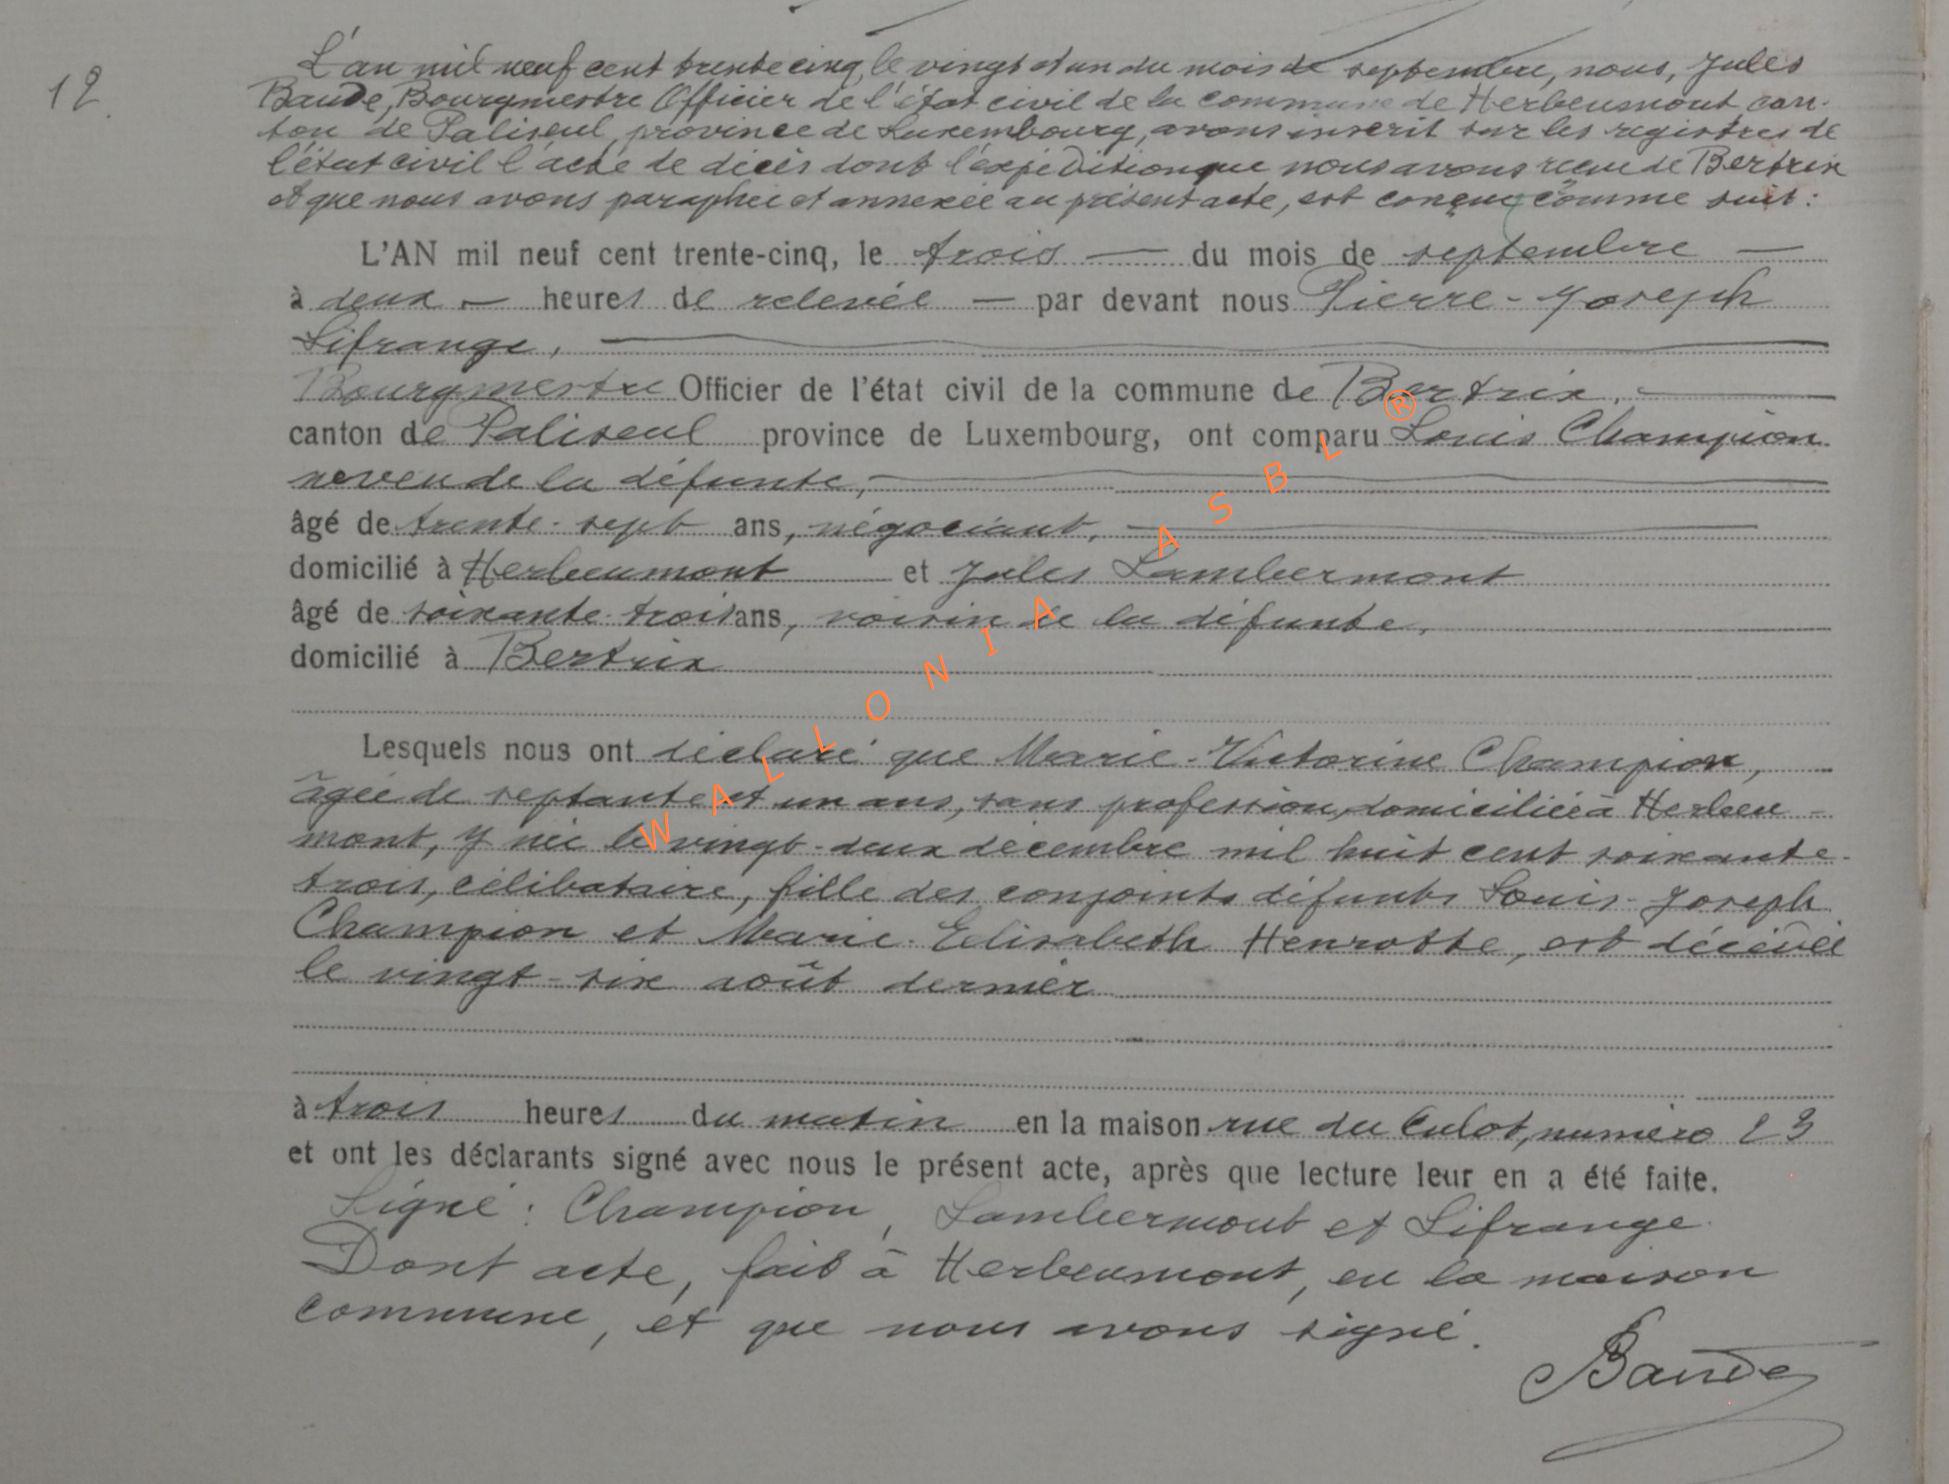 12.
L'an mil neuf cent trente cinq, le vingt et un du mois de septembre, nous, Jules
Baude, Bourgmestre Officier de l'état civil de la commune de Herbeumont, can-
ton de Paliseul, province de Luxembourg, avons inscrit sur les registres de
l'état civil l'acte de décès dont l'expédition que nous avons reçue de Bertrix
et que nous avons paraphée et annexée au présent acte, est conçue comme suit :
L'AN mil neuf cent trente-cinq, le trois — du mois de septembre —
à deux — heures de relevée — par devant nous Pierre-Joseph
Lifrange, —
Bourgmestre Officier de l'état civil de la commune de Bertrix, —
canton de Paliseul province de Luxembourg, ont comparu Louis Champion
neveu de la défunte, —
âgé de trente-sept ans, négociant, —
domicilié à Herbeumont — et Jules Lambermont
âgé de soixante-trois ans, voisin de la défunte,
domicilié à Bertrix
Lesquels nous ont déclaré que Marie-Victorine Champion,
âgée de septante et un ans, sans profession, domiciliée à Herbeu-
mont, y née le vingt-deux décembre mil huit cent soixante-
trois, célibataire, fille des conjoints défunts Louis-Joseph
Champion et Marie-Elisabeth Henrotte, est décédée
le vingt-six août dernier
à trois heures du matin en la maison rue du Culot, numéro 23
et ont les déclarants signé avec nous le présent acte, après que lecture leur en a été faite.
Signé : Champion, Lambermont et Lifrange.
Dont acte, fait à Herbeumont, en la maison
commune, et que nous avons signé.
Baude
WALLONIA ASBL ®